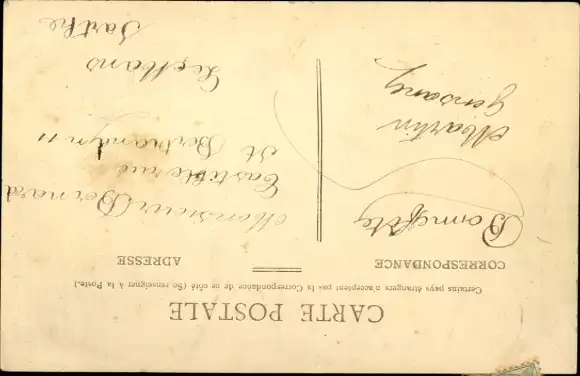 CARTE POSTALE
Certains pays étrangers n'acceptent pas la Correspondance de ce côté (Se renseigner à la Poste.)
CORRESPONDANCE
ADRESSE
Bonne fête
Martin
Monsieur Bernard
rue
St Bertrand n 11
Le Mans
Sarthe